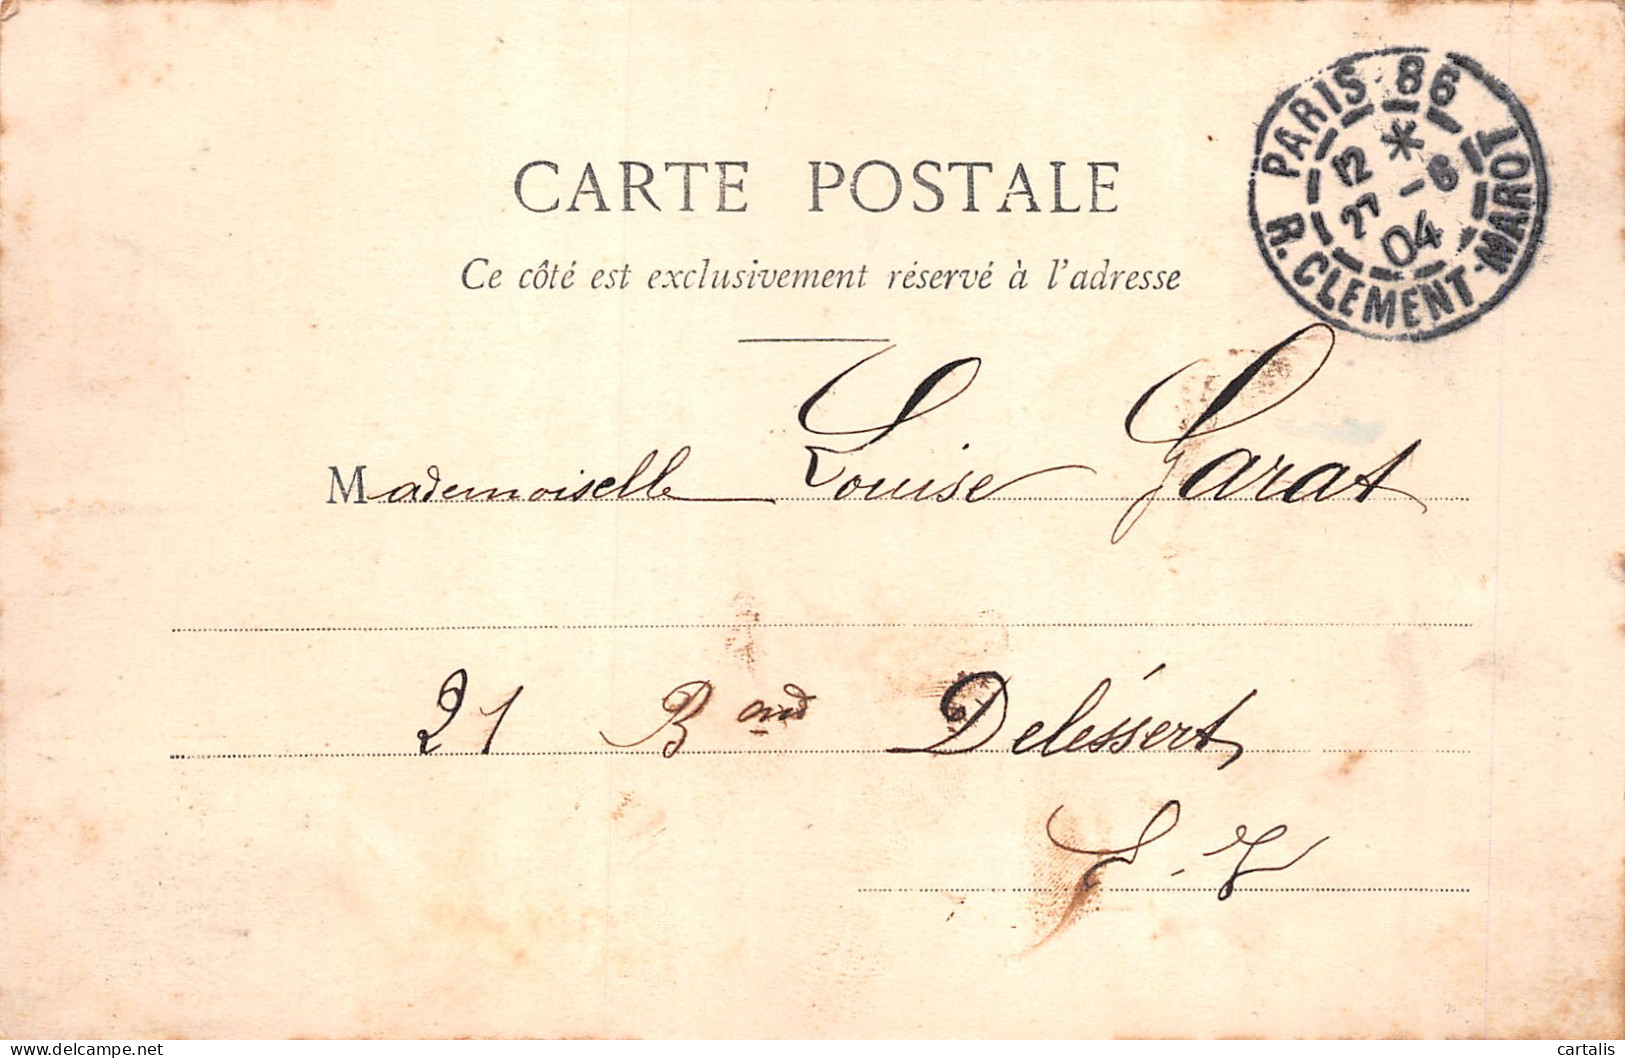 PARIS 86
R. CLEMENT-MAROT
12 *
27 -8
04
CARTE POSTALE
Ce côté est exclusivement réservé à l'adresse
Mademoiselle Louise Garat
21 Bard Deléssert
delcampe.net
cartalis